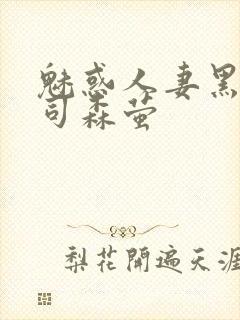 魅惑人妻黑
司森萤
梨花開遍天涯